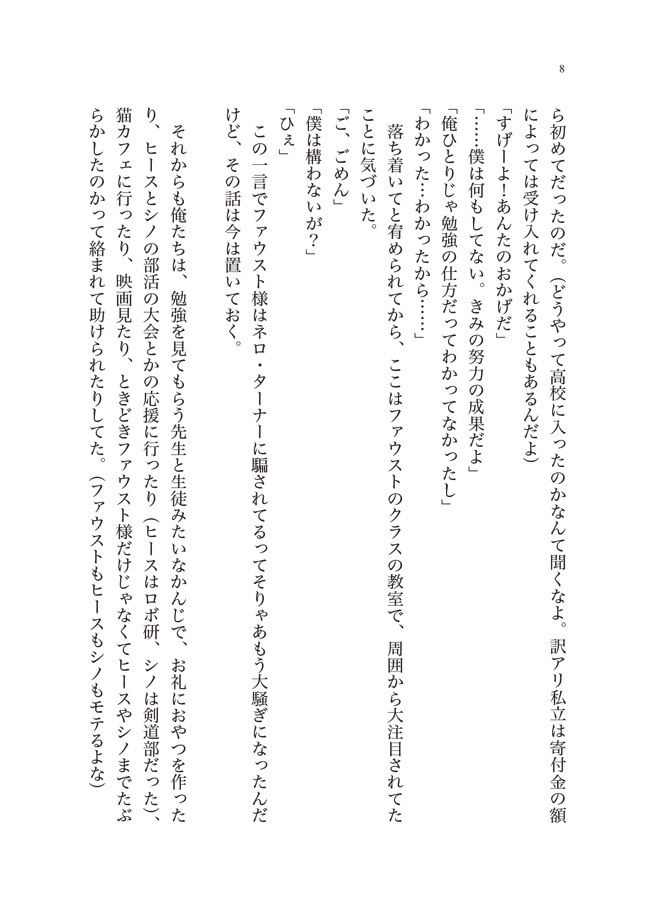 8
ら初めてだったのだ。（どうやって高校に入ったのかなんて聞くなよ。訳アリ私立は寄付金の額
によっては受け入れてくれることもあるんだよ）
「すげーよ！あんたのおかげだ」
「……僕は何もしてない。きみの努力の成果だよ」
「俺ひとりじゃ勉強の仕方だってわかってなかったし」
「わかった…わかったから……」
　落ち着いてと宥められてから、ここはファウストのクラスの教室で、周囲から大注目されてた
ことに気づいた。
「ご、ごめん」
「僕は構わないが？」
「ひぇ」
　この一言でファウスト様はネロ・ターナーに騙されてるってそりゃあもう大騒ぎになったんだ
けど、その話は今は置いておく。
　それからも俺たちは、勉強を見てもらう先生と生徒みたいなかんじで、お礼におやつを作った
り、ヒースとシノの部活の大会とかの応援に行ったり（ヒースはロボ研、シノは剣道部だった）、
猫カフェに行ったり、映画見たり、ときどきファウスト様だけじゃなくてヒースやシノまでたぶ
らかしたのかって絡まれて助けられたりしてた。（ファウストもヒースもシノもモテるよな）